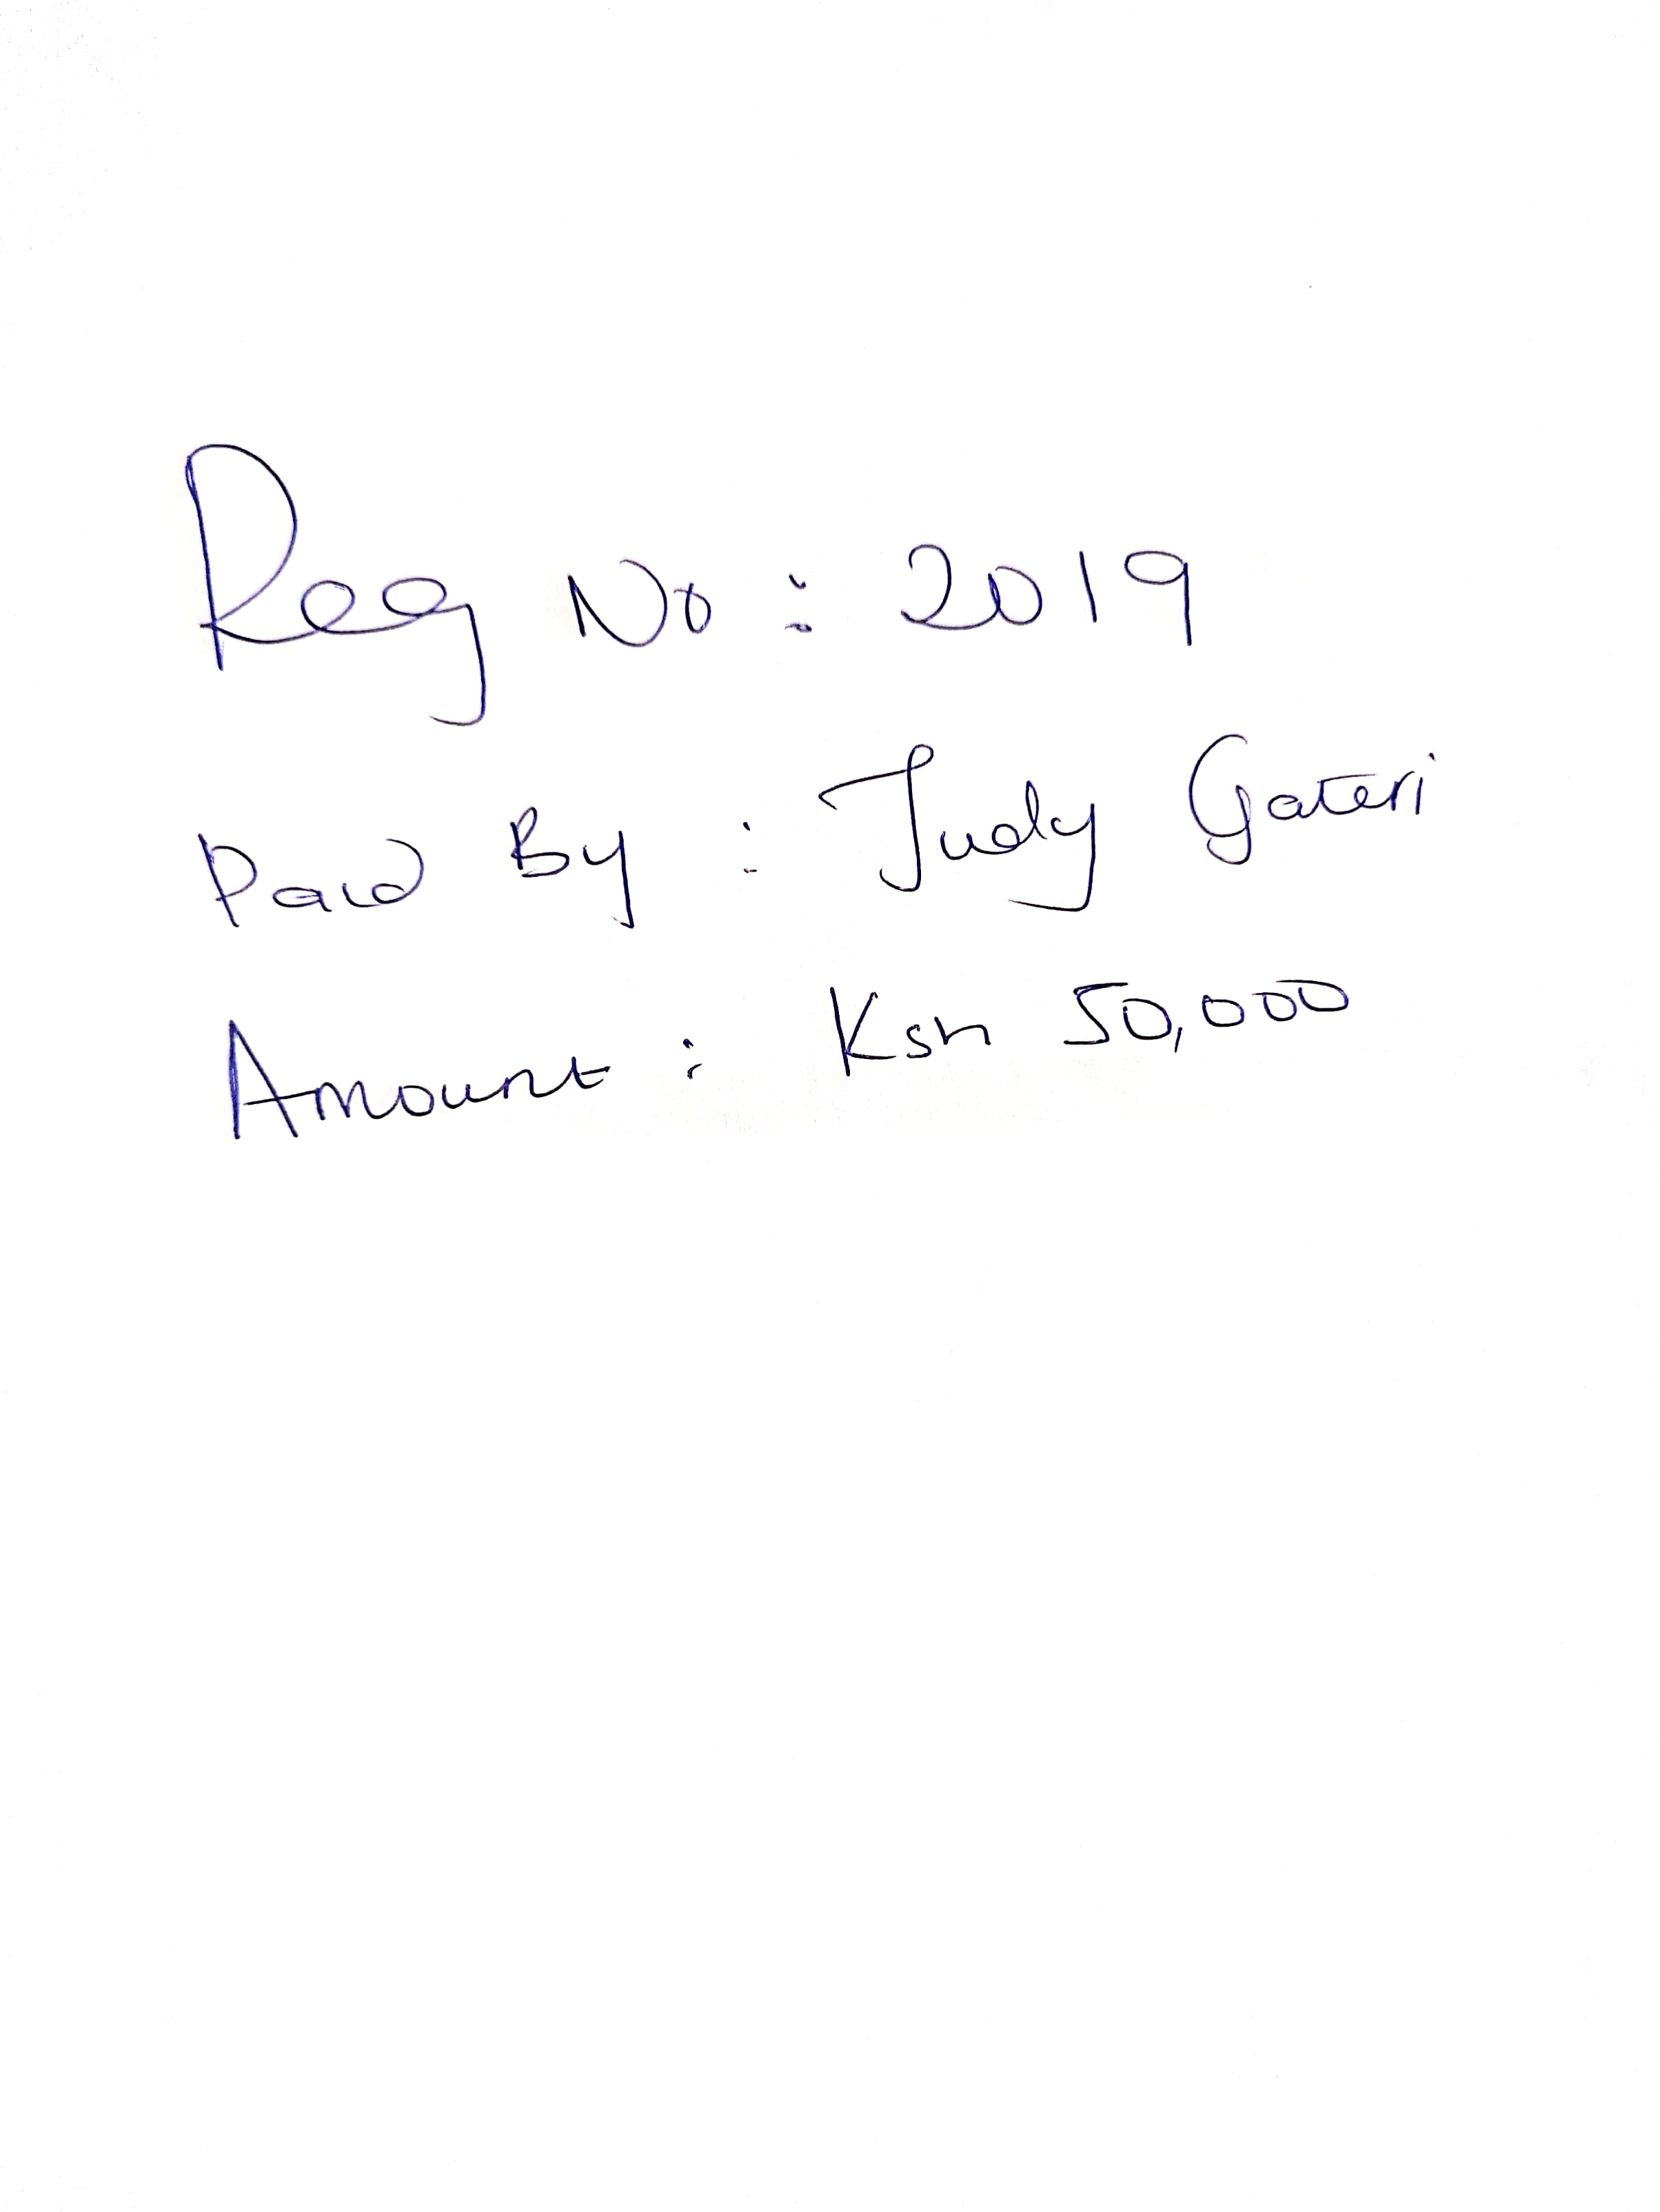 Reg No: 2019
Paid By: Judy Gateri
Amount: Ksh 50,000